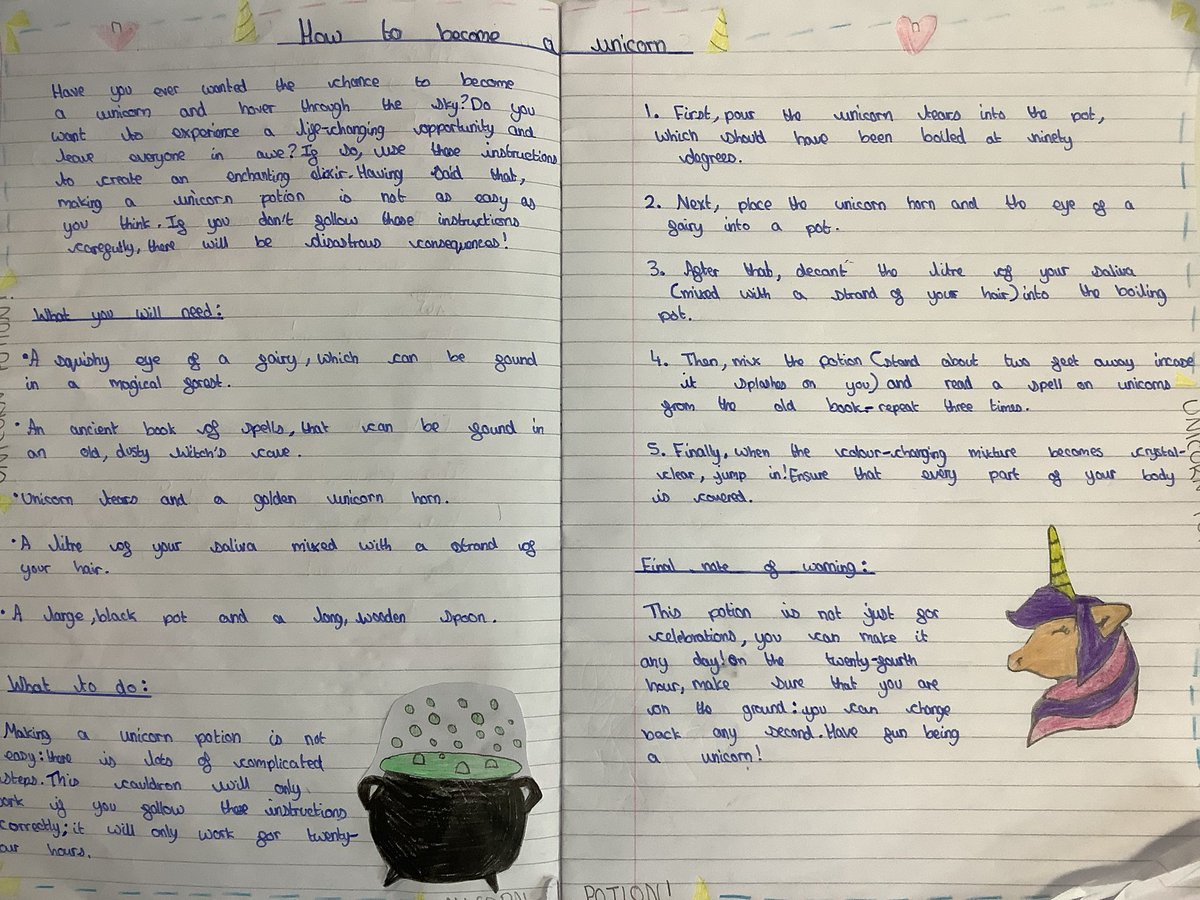 How to become a unicorn
Have you ever wanted the chance to become
a unicorn and hover through the sky? Do you
want to experience a life-changing opportunity and
leave everyone in awe? If so, use these instructions
to create an enchanting elixir. Having said that,
making a unicorn potion is not as easy as
you think. If you don't follow these instructions
carefully, there will be disastrous consequences!
What you will need:
•A squishy eye of a fairy, which can be found
in a magical forest.
•An ancient book of spells, that can be found in
an old, dusty witch's cave.
•Unicorn tears and a golden unicorn horn.
•A litre of your saliva mixed with a strand of
your hair.
•A large, black pot and a long, wooden spoon.
What to do:
Making a unicorn potion is not
easy: there is lots of complicated
steps. This cauldron will only
ork if you follow these instructions
correctly; it will only work for twenty-
our hours.
1. First, pour the unicorn tears into the pot,
which should have been boiled at ninety
degrees.
2. Next, place the unicorn horn and the eye of a
fairy into a pot.
3. After that, decant the litre of your saliva
(mixed with a strand of your hair) into the boiling
pot.
4. Then, mix the potion (stand about two feet away incase
it splashes on you) and read a spell on unicorns
from the old book-repeat three times.
5. Finally, when the colour-changing mixture becomes crystal-
clear, jump in! Ensure that every part of your body
is covered.
Final note of warning:
This potion is not just for
celebrations, you can make it
any day! On the twenty-fourth
hour, make sure that you are
on the ground: you can change
back any second. Have fun being
a unicorn!
POTION!
UNICORN